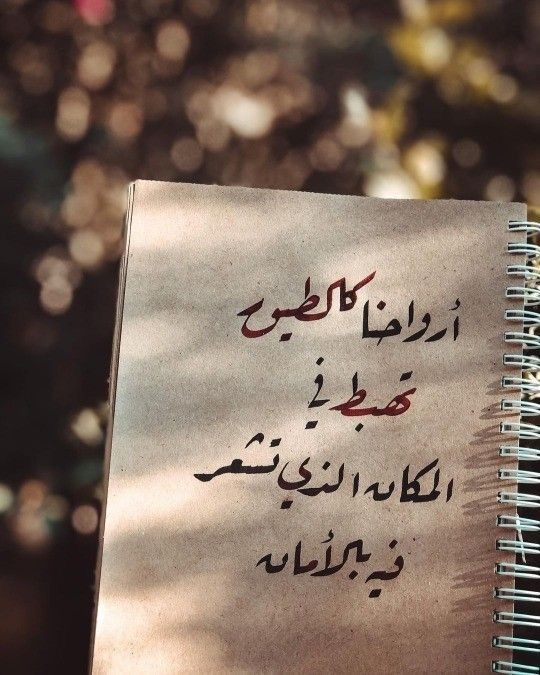 أرواحنا كالطيور
تهبط في
المكان الذي تشعر
فيه بالأمان